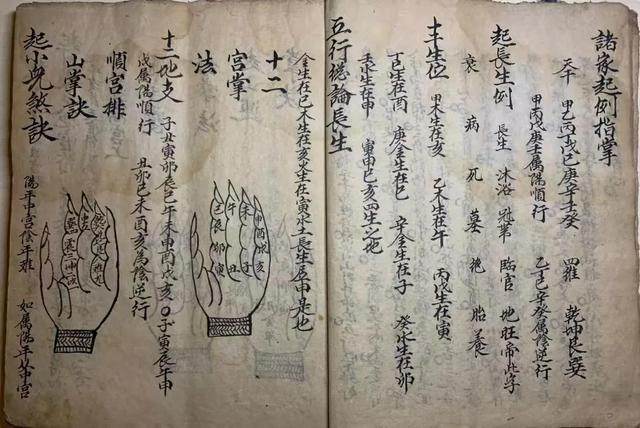 諸家起例指掌
天干 甲乙丙丁戊己庚辛壬癸 四維 乾坤艮巽
甲丙戊庚壬属陽順行 乙丁己辛癸属陰逆行
起長生例 長生 沐浴 冠帶 臨官 地旺帝此字
衰 病 死 墓 絶 胎 養
十干生位 甲木生在亥 乙木生在午 丙戊生在寅
丁己生在酉 庚金生在巳 辛金生在子 癸水生在卯
壬水生在申 寅申巳亥四生之地
五行總論長生
金生在巳木生在亥火生在寅水土長生居申是也
十二
宮掌
法
十二地支 子丑寅卯辰巳午未申酉戌亥〇子寅辰午申
戌属陽順行 丑卯巳未酉亥為陰逆行
順宮排
山掌訣
起小兒煞訣 陽年申宮陰年 如属陽年
申酉戌亥
未 子
午 丑
巳辰卯寅